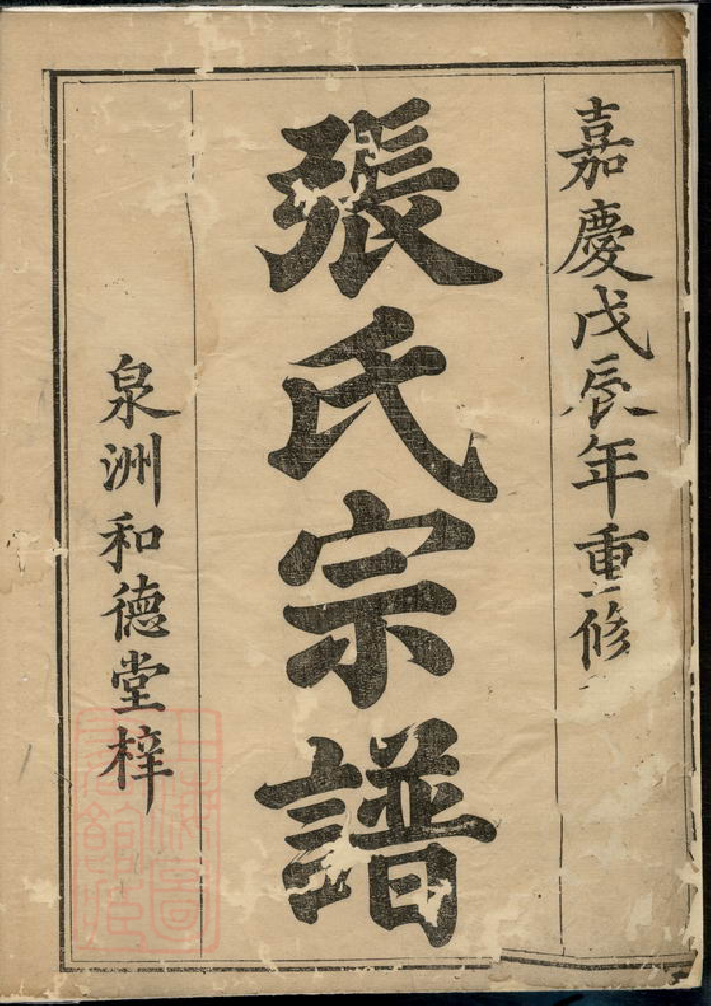 嘉慶戊辰年重修
張氏宗譜
泉洲和德堂梓